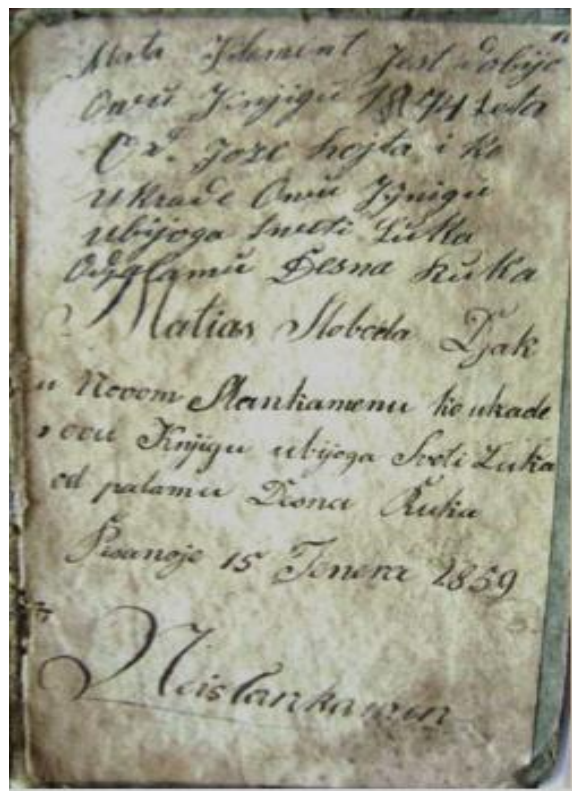 Mata Klement Jest dobijo
Ovu Knjigu 1844 Leta
Od. Joze hojta i ko
ukrade Ovu Kjnigu
ubijoga Sweti Luka
Odpalamu Desna Ruka
Matias Sloboda Djak
u Novom Slankamenu ko ukade
ovu Knjigu ubijoga Sveti Luka
od palamu Desna Ruka
Pisanoje 15 Jenera 1859
Neislankamen